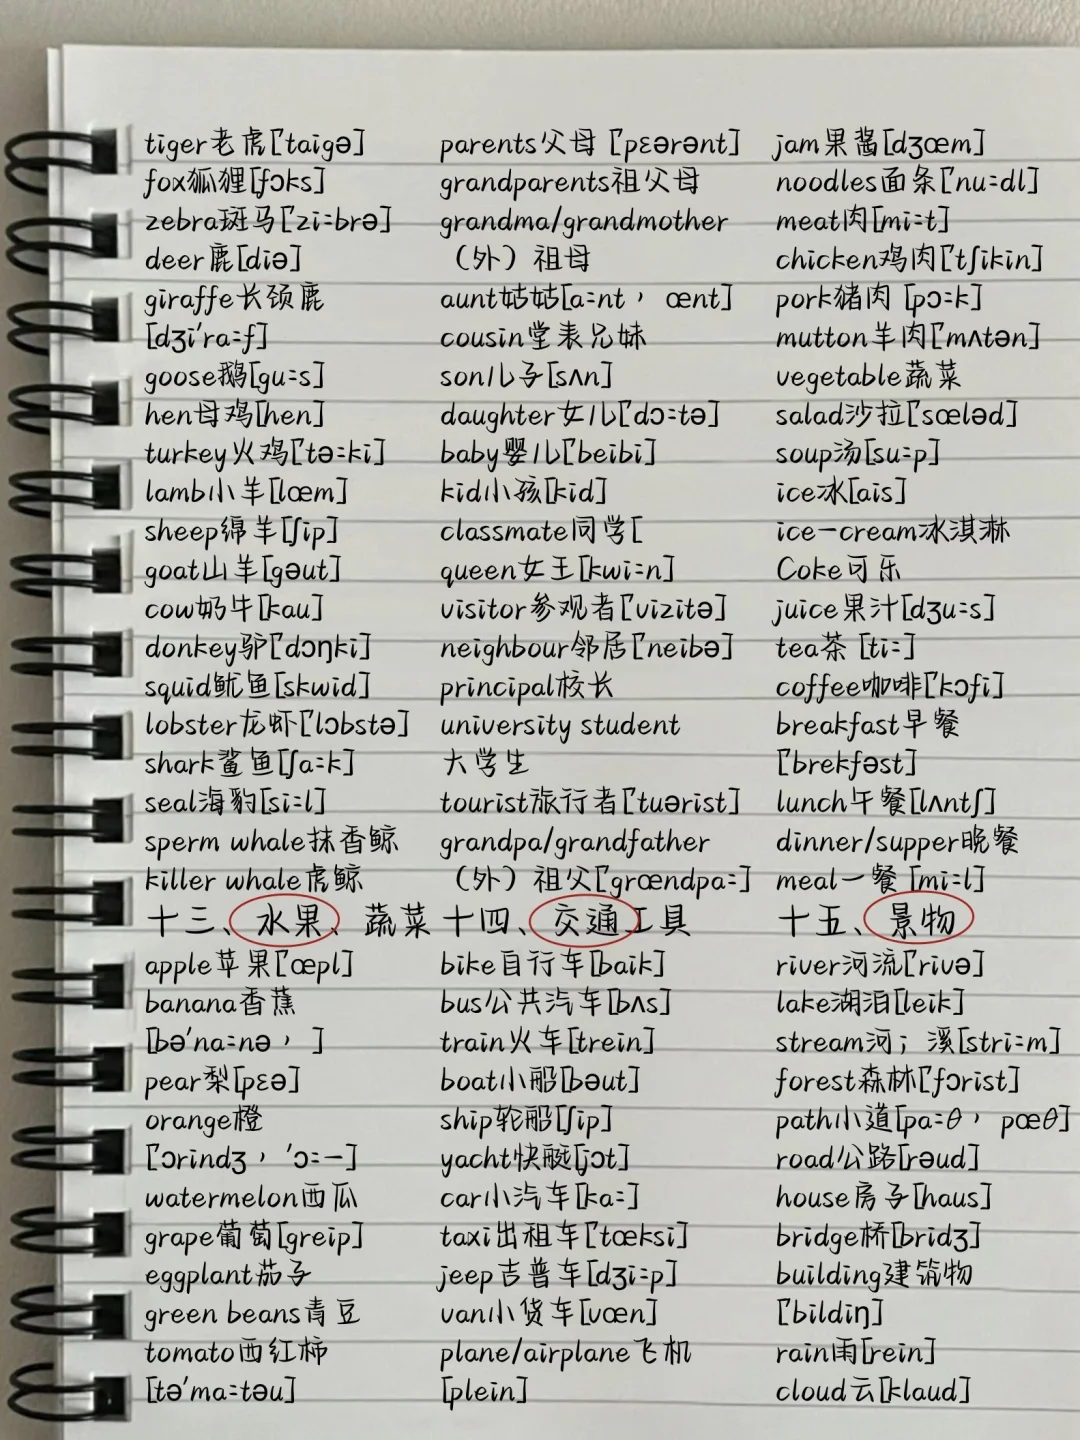 tiger老虎['taigə]
fox狐狸[fɔks]
zebra斑马['zi:brə]
deer鹿[diə]
giraffe长颈鹿
[dʒi'ra:f]
goose鹅[gu:s]
hen母鸡[hen]
turkey火鸡['tə:ki]
lamb小羊[læm]
sheep绵羊[ʃip]
goat山羊[gəut]
cow奶牛[kau]
donkey驴['dɔŋki]
squid鱿鱼[skwid]
lobster龙虾['lɔbstə]
shark鲨鱼[ʃa:k]
seal海豹[si:l]
sperm whale抹香鲸
killer whale虎鲸
十三、水果、蔬菜
apple苹果['æpl]
banana香蕉
[bə'na:nə， ]
pear梨[pɛə]
orange橙
['ɔrindʒ，'ɔ:—]
watermelon西瓜
grape葡萄[greip]
eggplant茄子
green beans青豆
tomato西红柿
[tə'ma:təu]
parents父母['pɛərənt]
grandparents祖父母
grandma/grandmother
（外）祖母
aunt姑姑[a:nt， ænt]
cousin堂表兄妹
son儿子[sʌn]
daughter女儿['dɔ:tə]
baby婴儿['beibi]
kid小孩[kid]
classmate同学[
queen女王[kwi:n]
visitor参观者['vizitə]
neighbour邻居['neibə]
principal校长
university student
大学生
tourist旅行者['tuərist]
grandpa/grandfather
（外）祖父['grændpa:]
十四、交通工具
bike自行车[baik]
bus公共汽车[bʌs]
train火车[trein]
boat小船[bəut]
ship轮船[ʃip]
yacht快艇[jɔt]
car小汽车[ka:]
taxi出租车['tæksi]
jeep吉普车[dʒi:p]
van小货车[væn]
plane/airplane飞机
[plein]
jam果酱[dʒæm]
noodles面条['nu:dl]
meat肉[mi:t]
chicken鸡肉['tʃikin]
pork猪肉 [pɔ:k]
mutton羊肉['mʌtən]
vegetable蔬菜
salad沙拉['sæləd]
soup汤[su:p]
ice冰[ais]
ice-cream冰淇淋
Coke可乐
juice果汁[dʒu:s]
tea茶 [ti:]
coffee咖啡['kɔfi]
breakfast早餐
['brekfəst]
lunch午餐[lʌntʃ]
dinner/supper晚餐
meal一餐 [mi:l]
十五、景物
river河流['rivə]
lake湖泊[leik]
stream河；溪[stri:m]
forest森林['fɔrist]
path小道[pa:θ， pæθ]
road公路[rəud]
house房子[haus]
bridge桥[bridʒ]
building建筑物
['bildiŋ]
rain雨[rein]
cloud云[klaud]